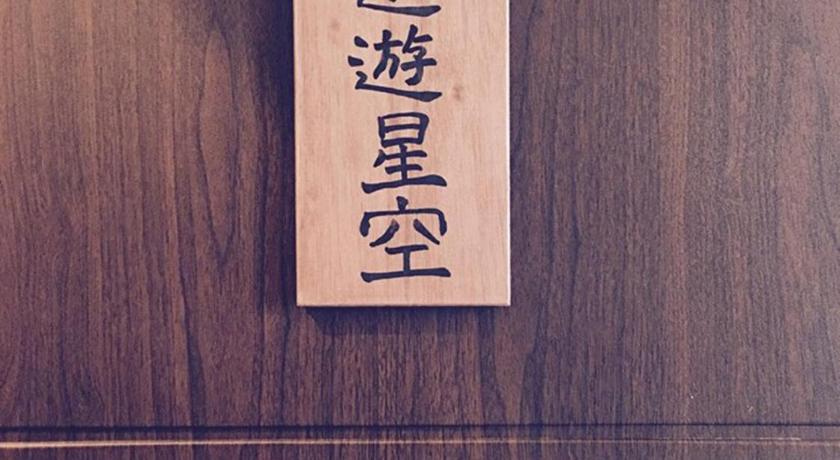 遊星空